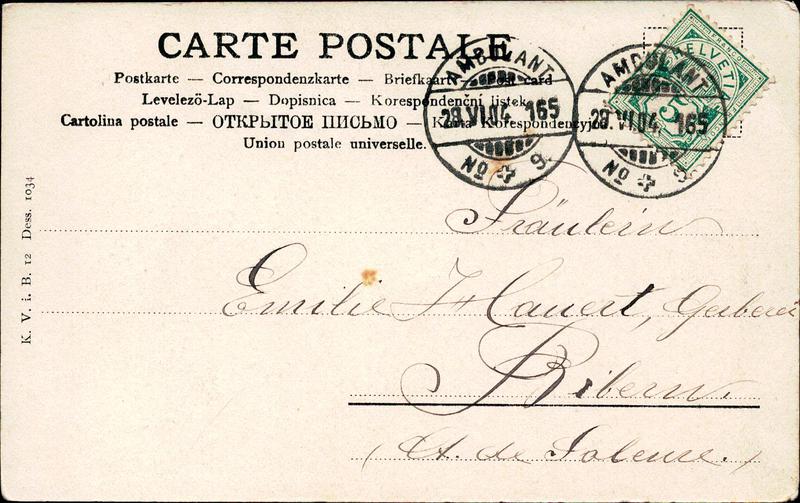 CARTE POSTALE
Postkarte — Correspondenzkarte — Briefkaart — Post card
Levelező-Lap — Dopisnica — Korespondenční listek
Cartolina postale — ОТКРЫТОЕ ПИСЬМО — Karta Korespondencyjna
Union postale universelle.
AMBULANT
29.VI.04 165
No 9.
AMBULANT
29.VI.04 165
No 9.
HELVETIA
5
K. V. i. B. 12 Dess. 1034
Fräulein
Emilie Hauert, Gerberei
Bibern.
(Ct. de Soleure.)